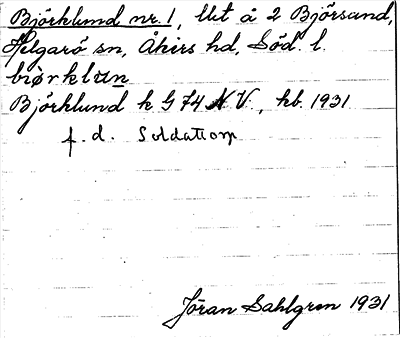 Björklund nr. 1, lht å 2 Björsund,
Helgarö sn, Åkers hd, Söd. l.
biørklun
Björklund k G 74 N V., hb. 1931
f. d. Soldattorp
Jöran Sahlgren 1931